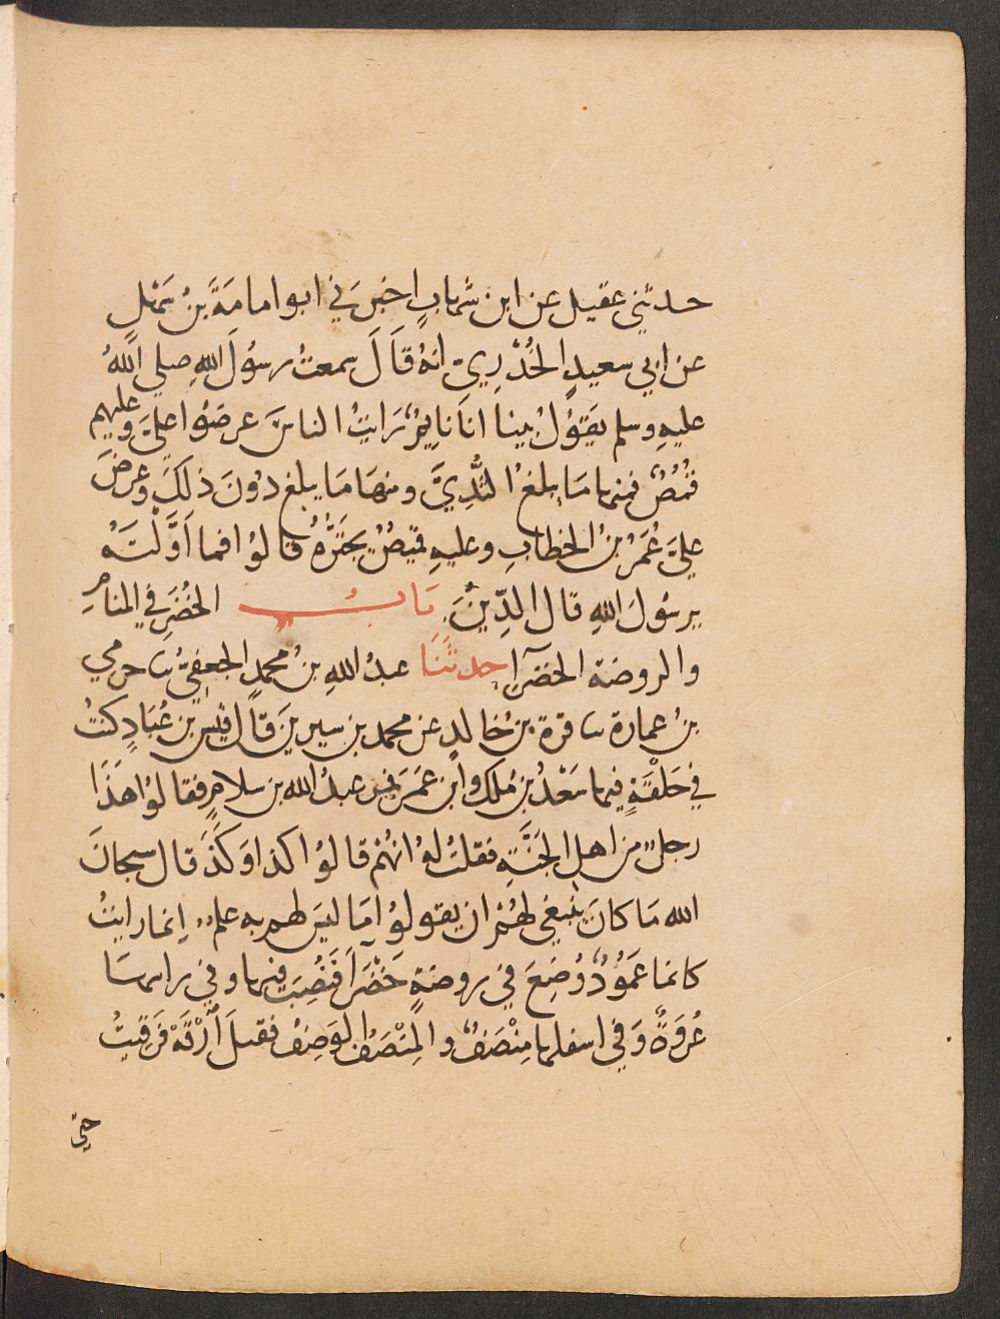 حدثني عقيل عن ابن شهابٍ اخبرَني ابو امامَةَ بنُ سَهْلٍ
عن ابي سعيدٍ الخُدْرِيّ انهُ قَالَ سمعتُ رسُولَ اللهِ صلي اللهُ
عليهِ وسلم يَقوُلُ بينا انَا نايِمٌ رَايتُ الناسَ عرضوُا عليَّ وعليهم
قُمُصٌ فمنها مَا يبلغ الثُّدِيَّ ومنهَا مَا يبلغ دوُنَ ذلكَ وعرضَ
عليَّ عُمَرُ بنُ الخطابِ وعليهِ قميصٌ يجتَرُّهُ قالوُا فما اَوَّلْتَهُ
يرسُولَ اللهِ قال الدِّينُ بَابُ الخُضَرِ في المنامِ
والروضة الخضرآِ حدثَنَا عبدُ اللهِ بنُ محمدٍ الجعفيُّ ثنا حرمي
بنُ عمارة ثنا قرة بنُ خالدٍ عن محمد بن سيرينَ قَال قيس بن عُبَادٍ كنتُ
في حَلْقَةٍ فيها سَعْدُ بن مٰلك وابن عمَرَ فمر عبدُ الله بن سلامٍ فقالوُا هَذَا
رجلٌ من اهل الجَنَّةِ فقلتُ لهُ انهُمْ قالوُا كذا وَكَذَا قال سبحانَ
الله مَا كانَ ينبغي لهُمْ ان يقولوُا مَا ليسَ لهم به علمٌ اِنما رايتُ
كانما عَموُدٌ وُضِعَ في روضةٍ خَضْرَآ فَنُصِبَ فيها وفي راسهَا
عُروَةٌ وَفي اسفلها مِنْصَفٌ والمِنْصَفُ الوَصِيفُ فقيلَ اَرْقَهْ فَرَقِيتُ
حتي